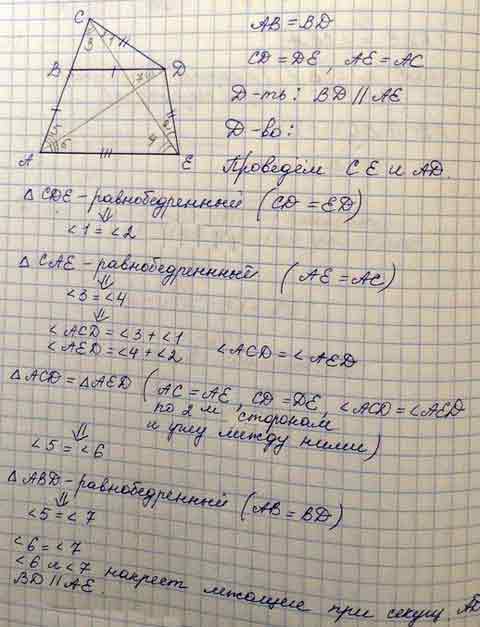 C
3 1
B D
7
5 6 4 2
A E
AB = BD
CD = DE, AE = AC
Д-ть: BD || AE
Д-во:
Проведём CE и AD.
△ CDE - равнобедренный (CD = ED)
⇓
<1 = <2
△ CAE - равнобедренный (AE = AC)
⇓
<3 = <4
⇓
<ACD = <3 + <1
<AED = <4 + <2 <ACD = <AED
△ ACD = △AED (AC = AE, CD = DE, <ACD = <AED
по 2м сторонам
и углу между ними)
⇓
<5 = <6
△ABD - равнобедренный (AB = BD)
⇓
<5 = <7
<6 = <7
<6 и <7 накрест лежащие при секущ. AD
BD || AE.